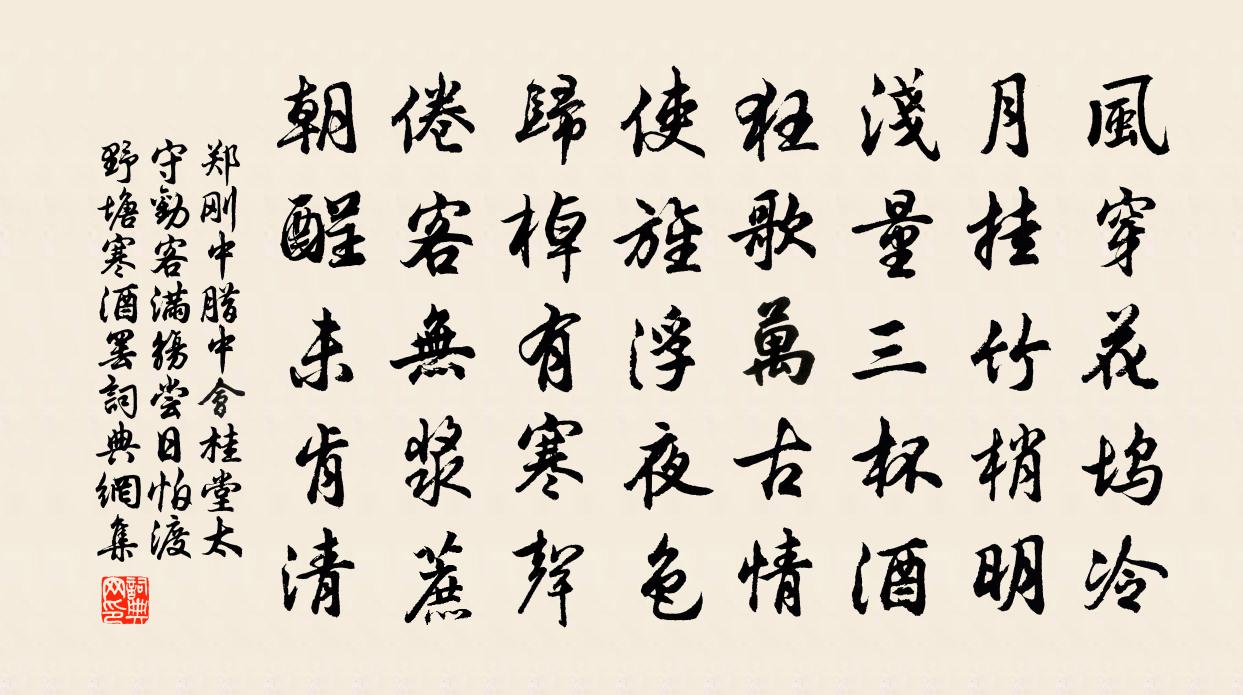 風穿花塢冷
月挂竹梢明
淺量三杯酒
狂歌萬古情
使旌浮夜色
歸棹有寒聲
倦客無漿蔗
朝酲未肯清
郑刚中腊中會桂堂太
守勸客滿觴尝日怕渡
野塘寒酒罢詞典網集
詞典
网印